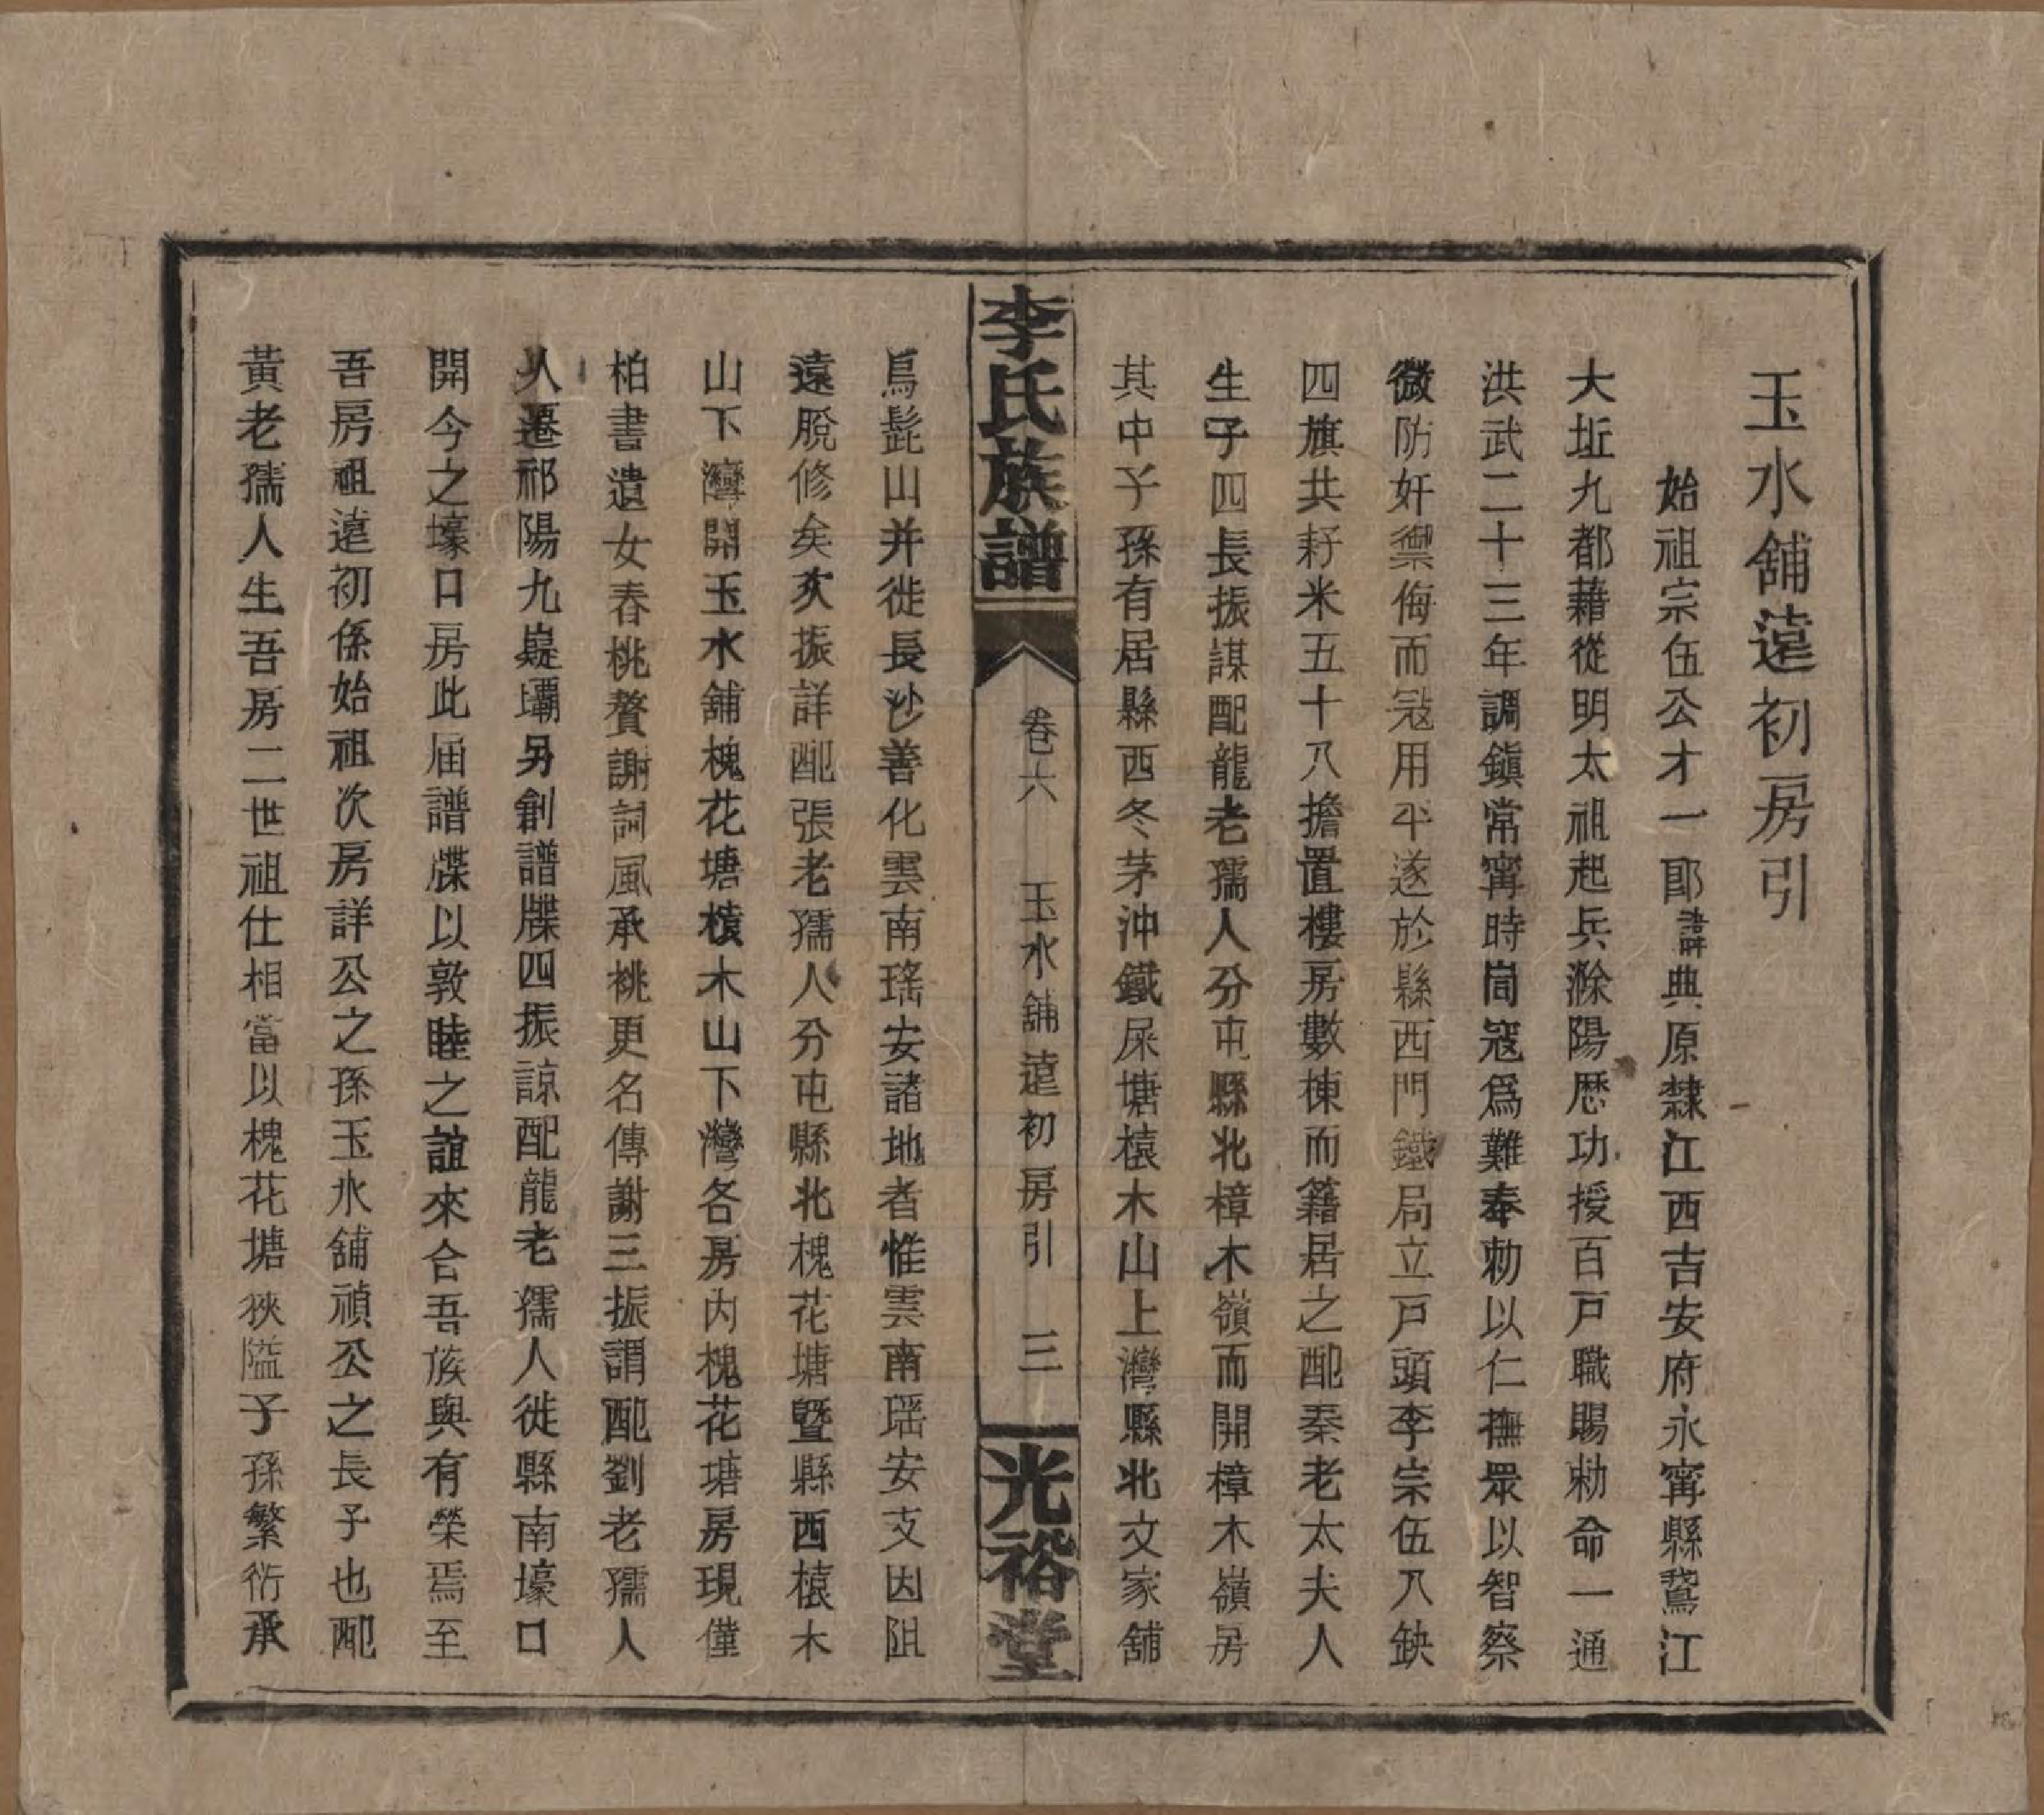 玉水舖遠初房引
始祖宗伍公才一郎諱典原隸江西吉安府永寧縣鵞江
大坵九都藉從明太祖起兵滁陽歷功授百戸職賜勅命一通
洪武二十三年調鎭常寧時峝寇爲難奉勅以仁撫眾以智察
微防奸禦侮而寇用平遂於縣西門鐵局立戸頭李宗伍八缺
四旗共耔米五十八擔置樓房數棟而籍居之配秦老太夫人
生子四長振謀配龍老孺人分屯縣北樟木嶺而開樟木嶺房
其中子孫有居縣西冬茅沖鐵屎塘檺木山上灣縣北文家舖
鳥髭山并徙長沙善化雲南瑤安諸地者惟雲南瑤安支因阻
遠脫修矣次振詳配張老孺人分屯縣北槐花塘暨縣西檺木
山下灣開玉水舖槐花塘檺木山下灣各房內槐花塘房現僅
柏書遺女春桃贅謝詞風承桃更名傳謝三振謂配劉老孺人
人遷祁陽九嶷壩另創譜牒四振諒配龍老孺人徙縣南壕口
開今之壕口房此届譜牒以敦睦之誼來合吾族與有榮焉至
吾房祖遠初係始祖次房詳公之孫玉水舖禎公之長子也配
黃老孺人生吾房二世祖仕相當以槐花塘狹隘子孫繁衍承
李氏族譜
卷六
玉水舖遠初房引
三
光裕堂